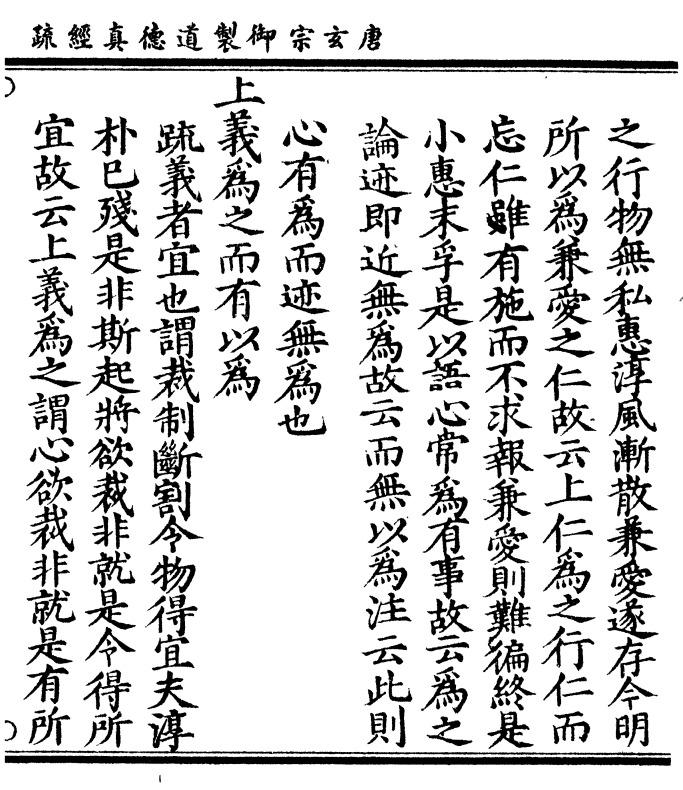 唐玄宗御製道德真經疏
之行物無私惠淳風漸散兼愛遂存今明
所以爲兼愛之仁故云上仁爲之行仁而
忘仁雖有施而不求報兼愛則難徧終是
小惠未孚是以語心常爲有事故云爲之
論迹即近無爲故云而無以爲注云此則
心有爲而迹無爲也
上義爲之而有以爲
疏義者宜也謂裁制斷割令物得宜夫淳
朴已殘是非斯起將欲裁非就是令得所
宜故云上義爲之謂心欲裁非就是有所